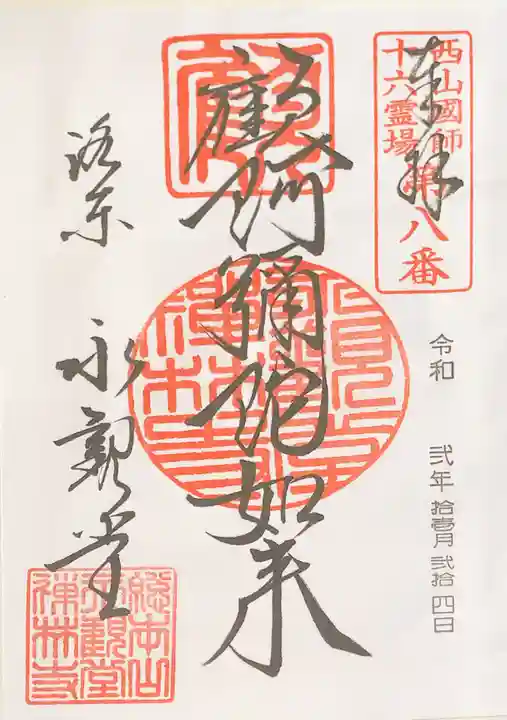 奉拝
西山國師
十六霊場
第八番
令和 弐年 拾壱月 弐拾四日
顧阿彌陀如来
洛东 永觀堂
總本山
永觀堂
禅林寺